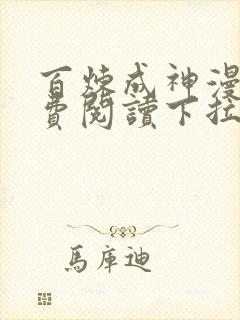 百炼成神漫
费閱讀下拉
馬庫迪